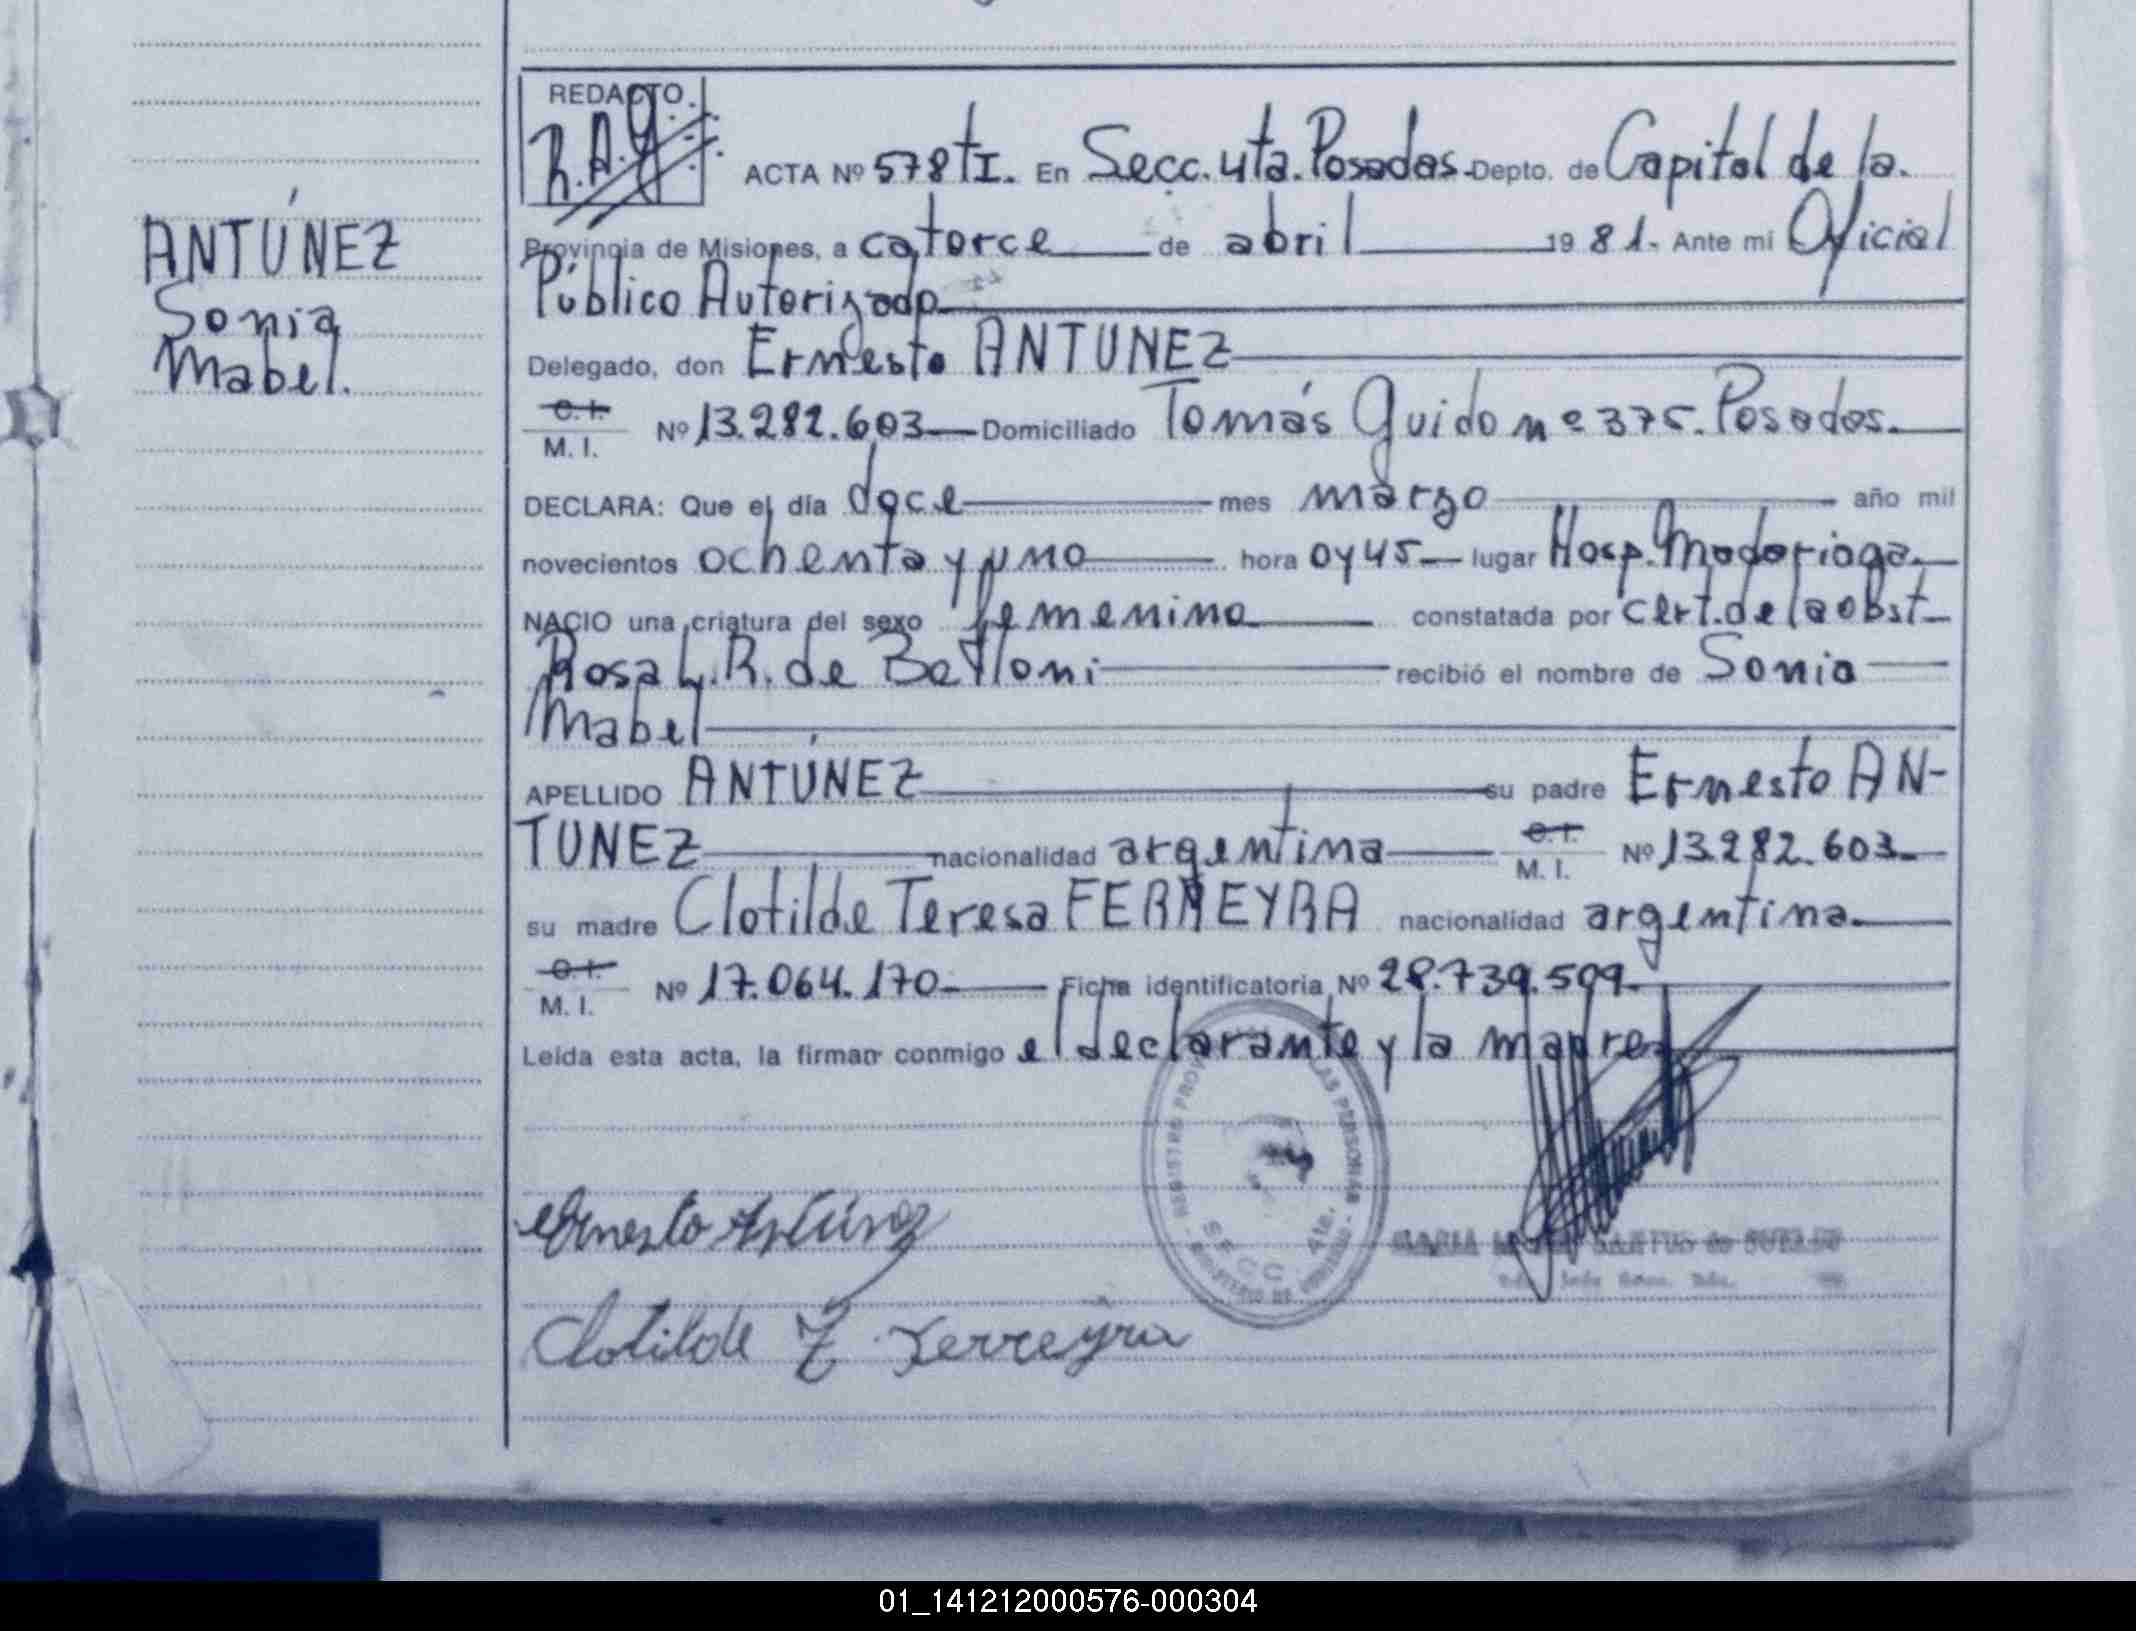 REDACTO
R.A.G.
ACTA Nº 578 tI. En Secc. 4ta. Posadas. Depto. de Capital de la
Provincia de Misiones, a catorce de abril 1981. Ante mi Oficial
Público Autorizado
Delegado, don Ernesto ANTUNEZ
C. I.
M. I. Nº 13.282.603 Domiciliado Tomás Guido nº 375. Posadas.
DECLARA: Que el día doce mes marzo año mil
novecientos ochenta y uno hora 0 y 45 lugar Hosp. Madariaga.
NACIO una criatura del sexo femenino constatada por cert. de la obst
Rosa L. R. de recibió el nombre de Sonia
Mabel
APELLIDO ANTÚNEZ su padre Ernesto AN-
TUNEZ nacionalidad argentina C. I. M. I. Nº 13.282.603
su madre Clotilde Teresa FERREYRA nacionalidad argentina.
C. I.
M. I. Nº 17.064.170 Ficha identificatoria Nº 28.739.509.
Leída esta acta, la firman conmigo el declarante y la madre
ANTÚNEZ
Sonia
Mabel.
Ernesto Antúnez
Clotilde T. Ferreyra
SECC 4ta.
01_141212000576-000304